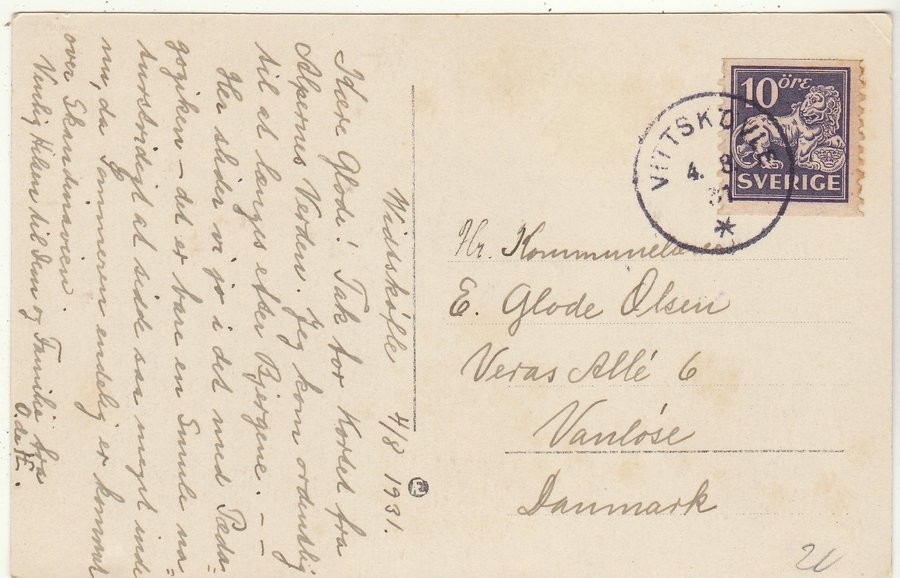 Vidtskøfle 4/8 1931.
Kære Glode! Tak for Kortet fra
Alpernes Verden. Jeg kom ordentlig
til at længes efter Bjergene. –
Her slider vi jo i det med Pæda-
gogiken – det er bare en Smule na=
tursvidigt at sidde saa meget inde
nu, da Sommeren endelig er kommet
over Skandinavien.
Venlig Hilsen til Dem og Familie fra
O. de
10 ÖRE
SVERIGE
VITTSKÖVLE
4. 8.
31
Hr. Kommunelærer
E. Glode Olsen
Veras Allé 6
Vanløse
Danmark